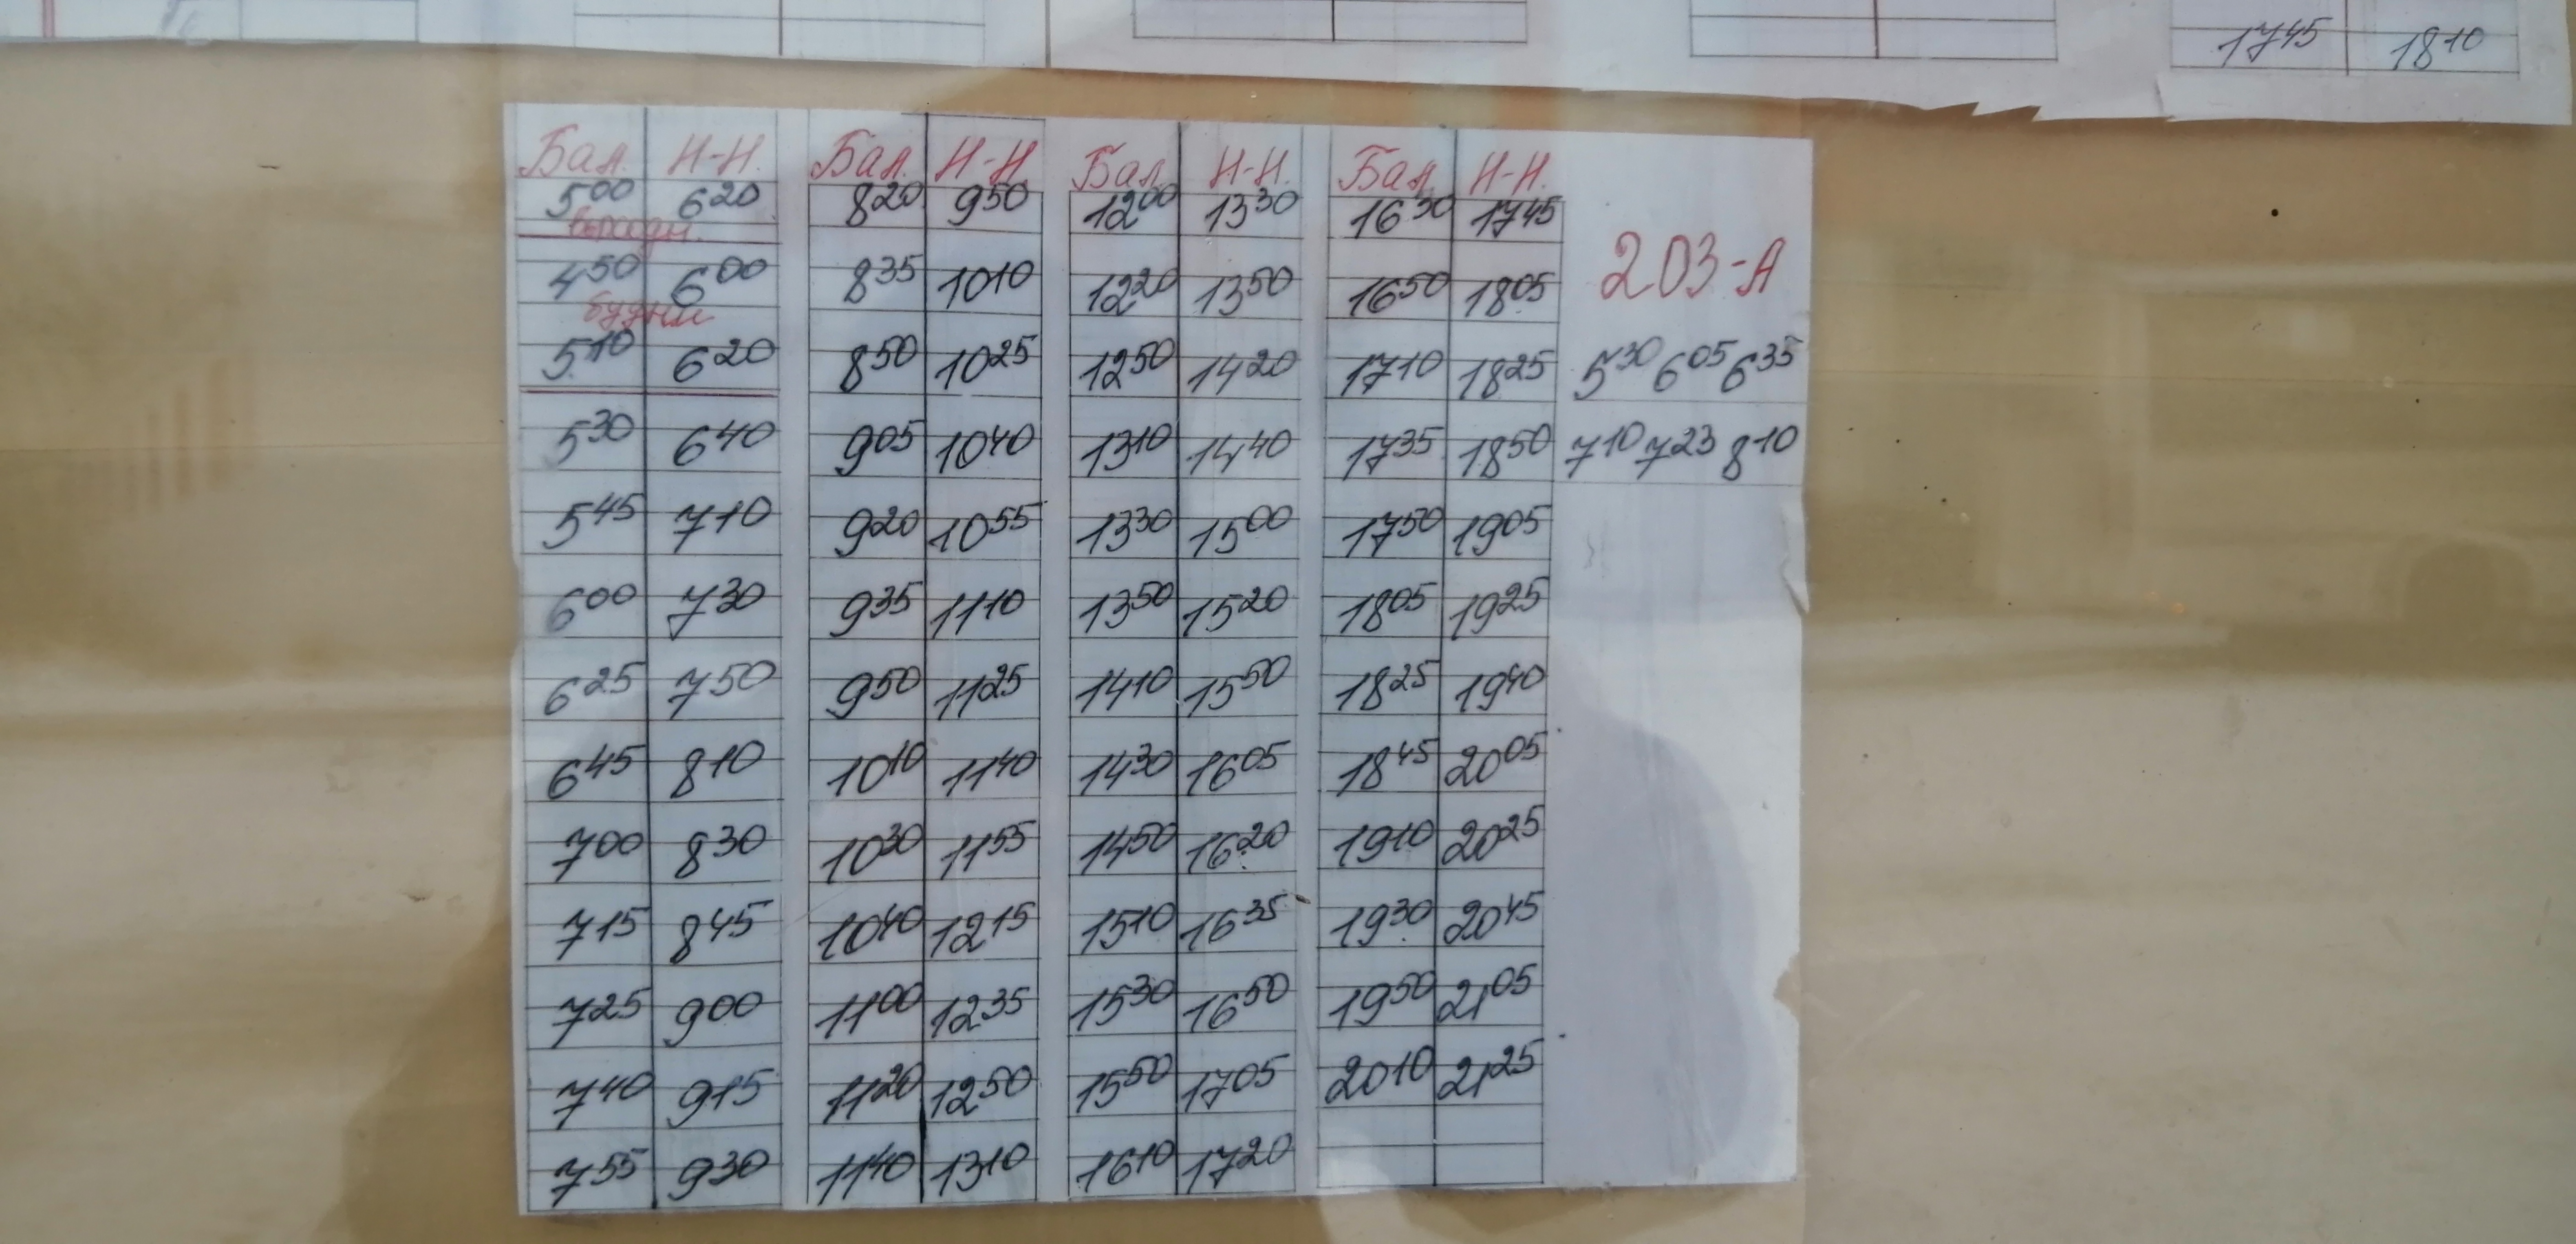 1745 1810
Бал. Н-Н. Бал. Н-Н. Бал. Н-Н. Бал. Н-Н.
500 620 820 950 1200 1330 1630 1745
выходн.
203-А
450 600 835 1010 1220 1350 1650 1805
будни
510 620 850 1025 1250 1420 1710 1825 530 605 635
530 640 905 1040 1310 1440 1735 1850 710 723 810
545 710 920 1055 1330 1500 1750 1905
600 730 935 1110 1350 1520 1805 1925
625 750 950 1125 1410 1550 1825 1940
645 810 1010 1140 1430 1605 1845 2005
700 830 1030 1155 1450 1620 1910 2025
715 845 1040 1215 1510 1635 1930 2045
725 900 1100 1235 1530 1650 1950 2105
740 915 1120 1250 1550 1705 2010 2125
755 930 1140 1310 1610 1720